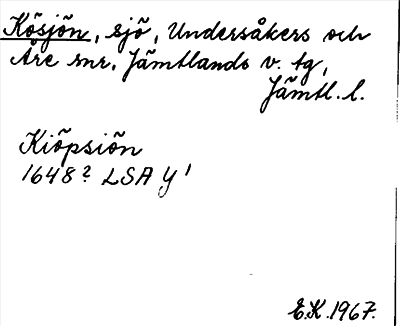 Kösjön, sjö, Undersåkers och
Åre snr, Jämtlands v. tg,
Jämtl. l.
Kiöpsiön
1648? LSA Y 1
E.K. 1967.